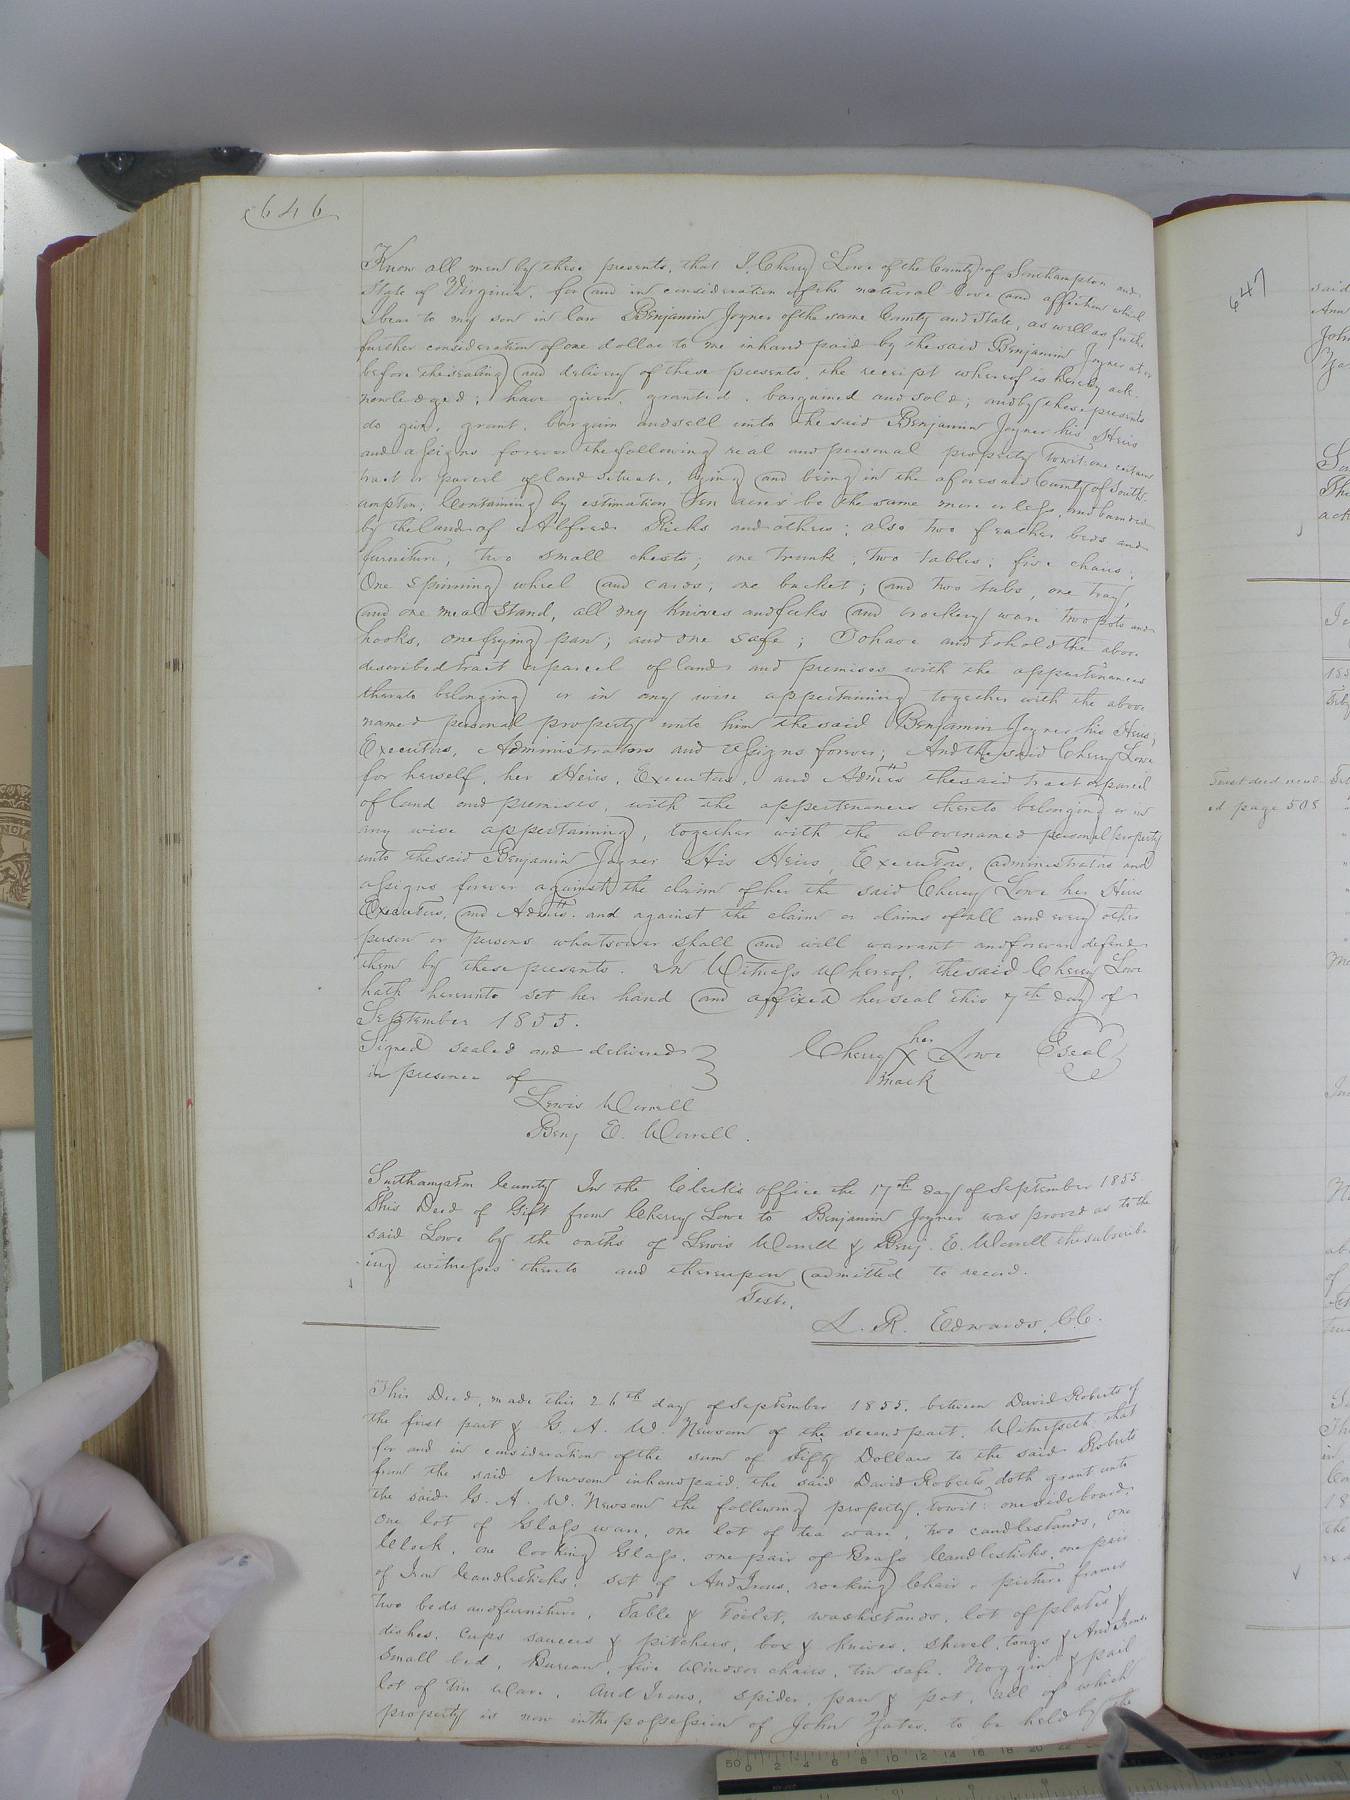 646
Know all men by these presents, that I, Cherry Lowe of the County of Southampton and
State of Virginia, for and in consideration of the natural love and affection which
I bear to my son in law Benjamin Joyner of the same County and State, as well as for the
further consideration of one dollar to me in hand paid by the said Benjamin Joyner at or
before the sealing and delivery of these presents, the receipt whereof is hereby ack-
nowledged; have given, granted, bargained and sold; and by these presents
do give, grant, bargain and sell unto the said Benjamin Joyner his Heirs
and assigns forever the following real and personal property towit: one certain
tract or parcel of land situate, lying and being in the aforesaid County of South-
ampton; Containing by estimation Ten acres be the same more or less, and bounded
by the land of Alfred Ricks and others; also two feather beds and
furniture; two small chests; one trunk; two tables; five chairs;
One spinning wheel and cards, one bucket; and two tubs, one tray,
and one meal Stand, all my knives and forks and crockery ware two pots and
hooks, one frying pan; and one safe; To have and to hold the above
described tract or parcel of land and premises with the appertenances
thereto belonging or in any wise appertaining together with the above
named personal property unto him the said Benjamin Joyner his Heirs,
Executors, Administrators and assigns forever; And the said Cherry Lowe
for herself, her Heirs, Executors, and Admrs the said tract or parcel
of land and premises, with the appertenances thereto belonging or in
any wise appertaining, together with the abovenamed personal property
unto the said Benjamin Joyner His Heirs, Executors, administrators and
assigns forever against the claim of her the said Cherry Lowe her Heirs
Executors, and Admrs. and against the claim or claims of all and every other
person or persons whatsoever shall and will warrant and forever defend
them by these presents. In Witness Whereof, the said Cherry Lowe
hath hereunto set her hand and affixed her seal this 7th day of
September 1855.
Signed sealed and delivered
in presence of
Cherry her X mark Lowe Seal
Lewis Worrell
Benj E. Worrell.
Southampton County In the Clerk's office the 17th day of September 1855
This Deed of Gift from Cherry Lowe to Benjamin Joyner was proved as to the
said Lowe by the oaths of Lewis Worrell & Benj. E. Worrell the subscrib-
ing witnesses thereto and thereupon admitted to record.
Teste,
L. R. Edwards, CC.
This Deed, made this 26th day of September 1855, between David Roberts of
the first part & G. A. W. Newsom of the second part, Witnesseth that
for and in consideration of the sum of Fifty Dollars to the said Roberts
from the said Newsom in hand paid, the said David Roberts, doth grant unto
the said G. A. W. Newsom the following property, towit: one sideboard,
One lot of Glass ware, one lot of tea ware, two candlestands, one
Clock, one looking Glass, one pair of Brass Candlesticks, one pair
of Iron Candlesticks, set of And Irons, rocking Chair, picture frames
two beds and furniture, Table & Toilet, washstands, lot of plates &
dishes, cups saucers & pitchers, box & knives, shovel, tongs & And Irons
Small bed, Bureau, five Windsor chairs, tin safe, Noggin & pail
lot of tin Ware, And Irons, spider, pan & pot, all of which
property is now in the possession of John Yates, to be held by the
647
said
Ann
John
Trust deed record-
ed page 508